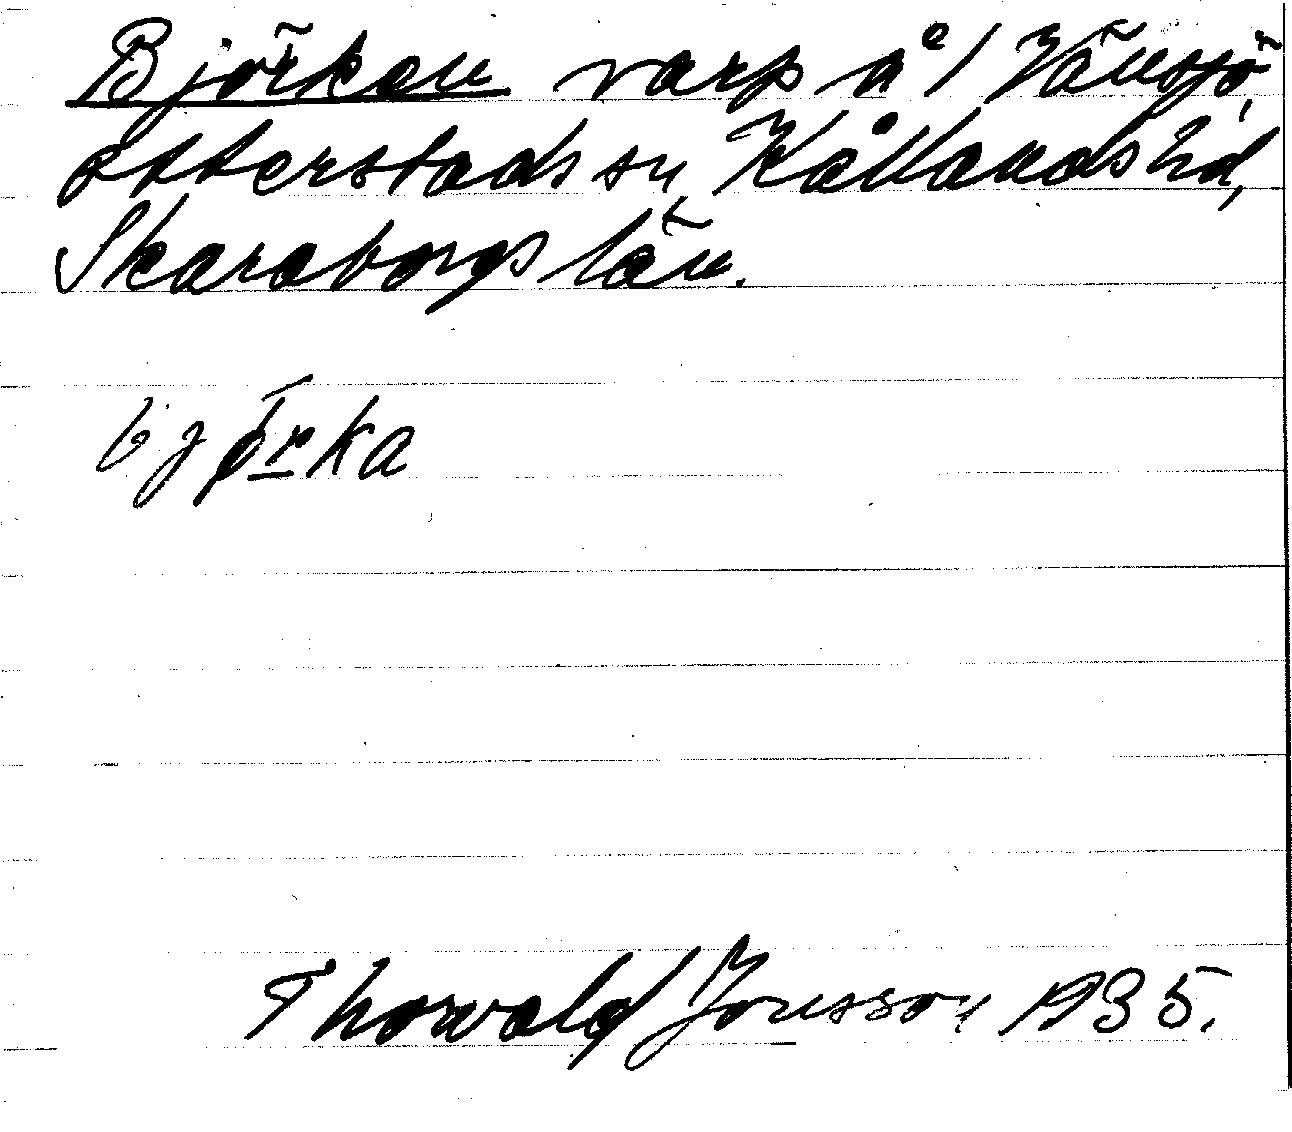 Björkan varp å / Vänsjö,
Otterstads sn, Kållands hd,
Skaraborgs län.
bjørka
Thorvald Jonsson 1935.